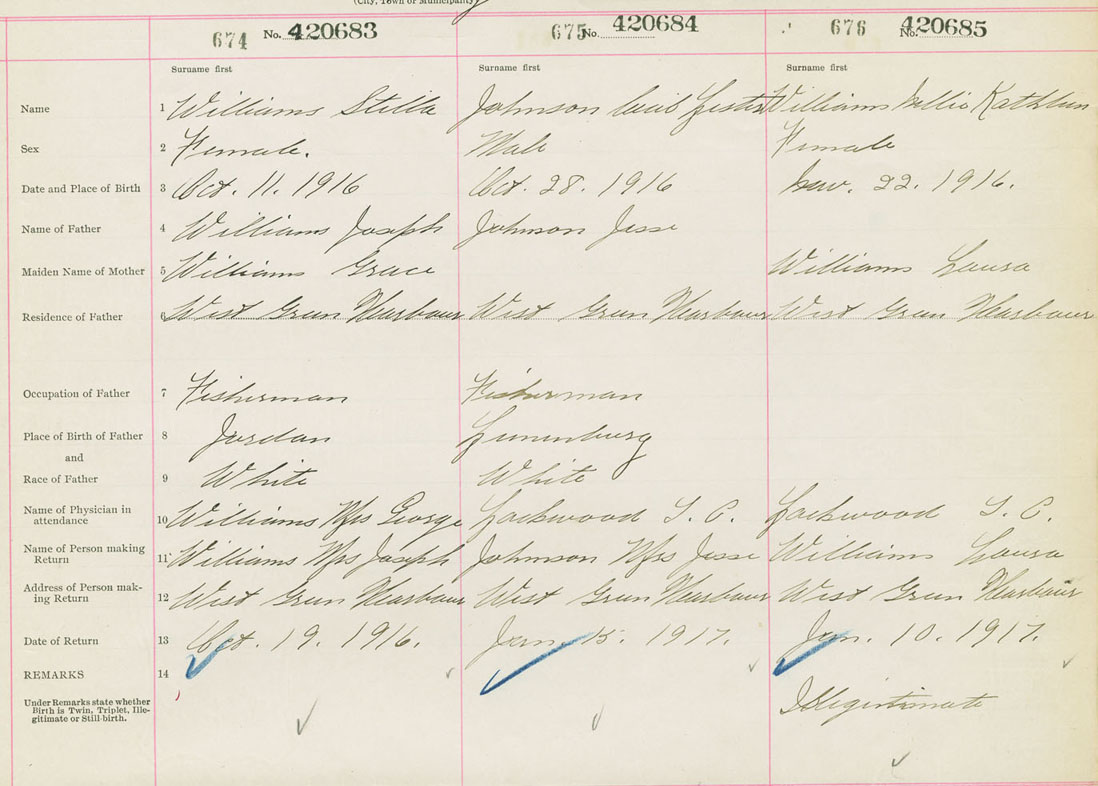 (City, Town or Municipality)
674 No. 420683 675 No. 420684 676 No. 420685
Surname first Surname first Surname first
Name 1 Williams Stilla Johnson Williams Kathleen
Sex 2 Female. Male Female
Date and Place of Birth 3 Oct. 11. 1916 Oct. 28. 1916 Nov. 22. 1916.
Name of Father 4 Williams Joseph Johnson Jesse
Maiden Name of Mother 5 Williams Grace Williams Laura
Residence of Father 6 West Green Harbour West Green Harbour West Green Harbour
Occupation of Father 7 Fisherman Fisherman
Place of Birth of Father 8 Jordan Lunenburg
and
Race of Father 9 White White
Name of Physician in
attendance 10 Williams Mrs George Lockwood T. C. Lockwood T. C.
Name of Person making
Return 11 Williams Mrs Joseph Johnson Mrs Jesse Williams Laura
Address of Person mak-
ing Return 12 West Green Harbour West Green Harbour West Green Harbour
Date of Return 13 Oct. 19. 1916. Jan. 15. 1917. Jan. 10. 1917.
REMARKS 14
Under Remarks state whether
Birth is Twin, Triplet, Ille-
gitimate or Still-birth.
Illegitimate